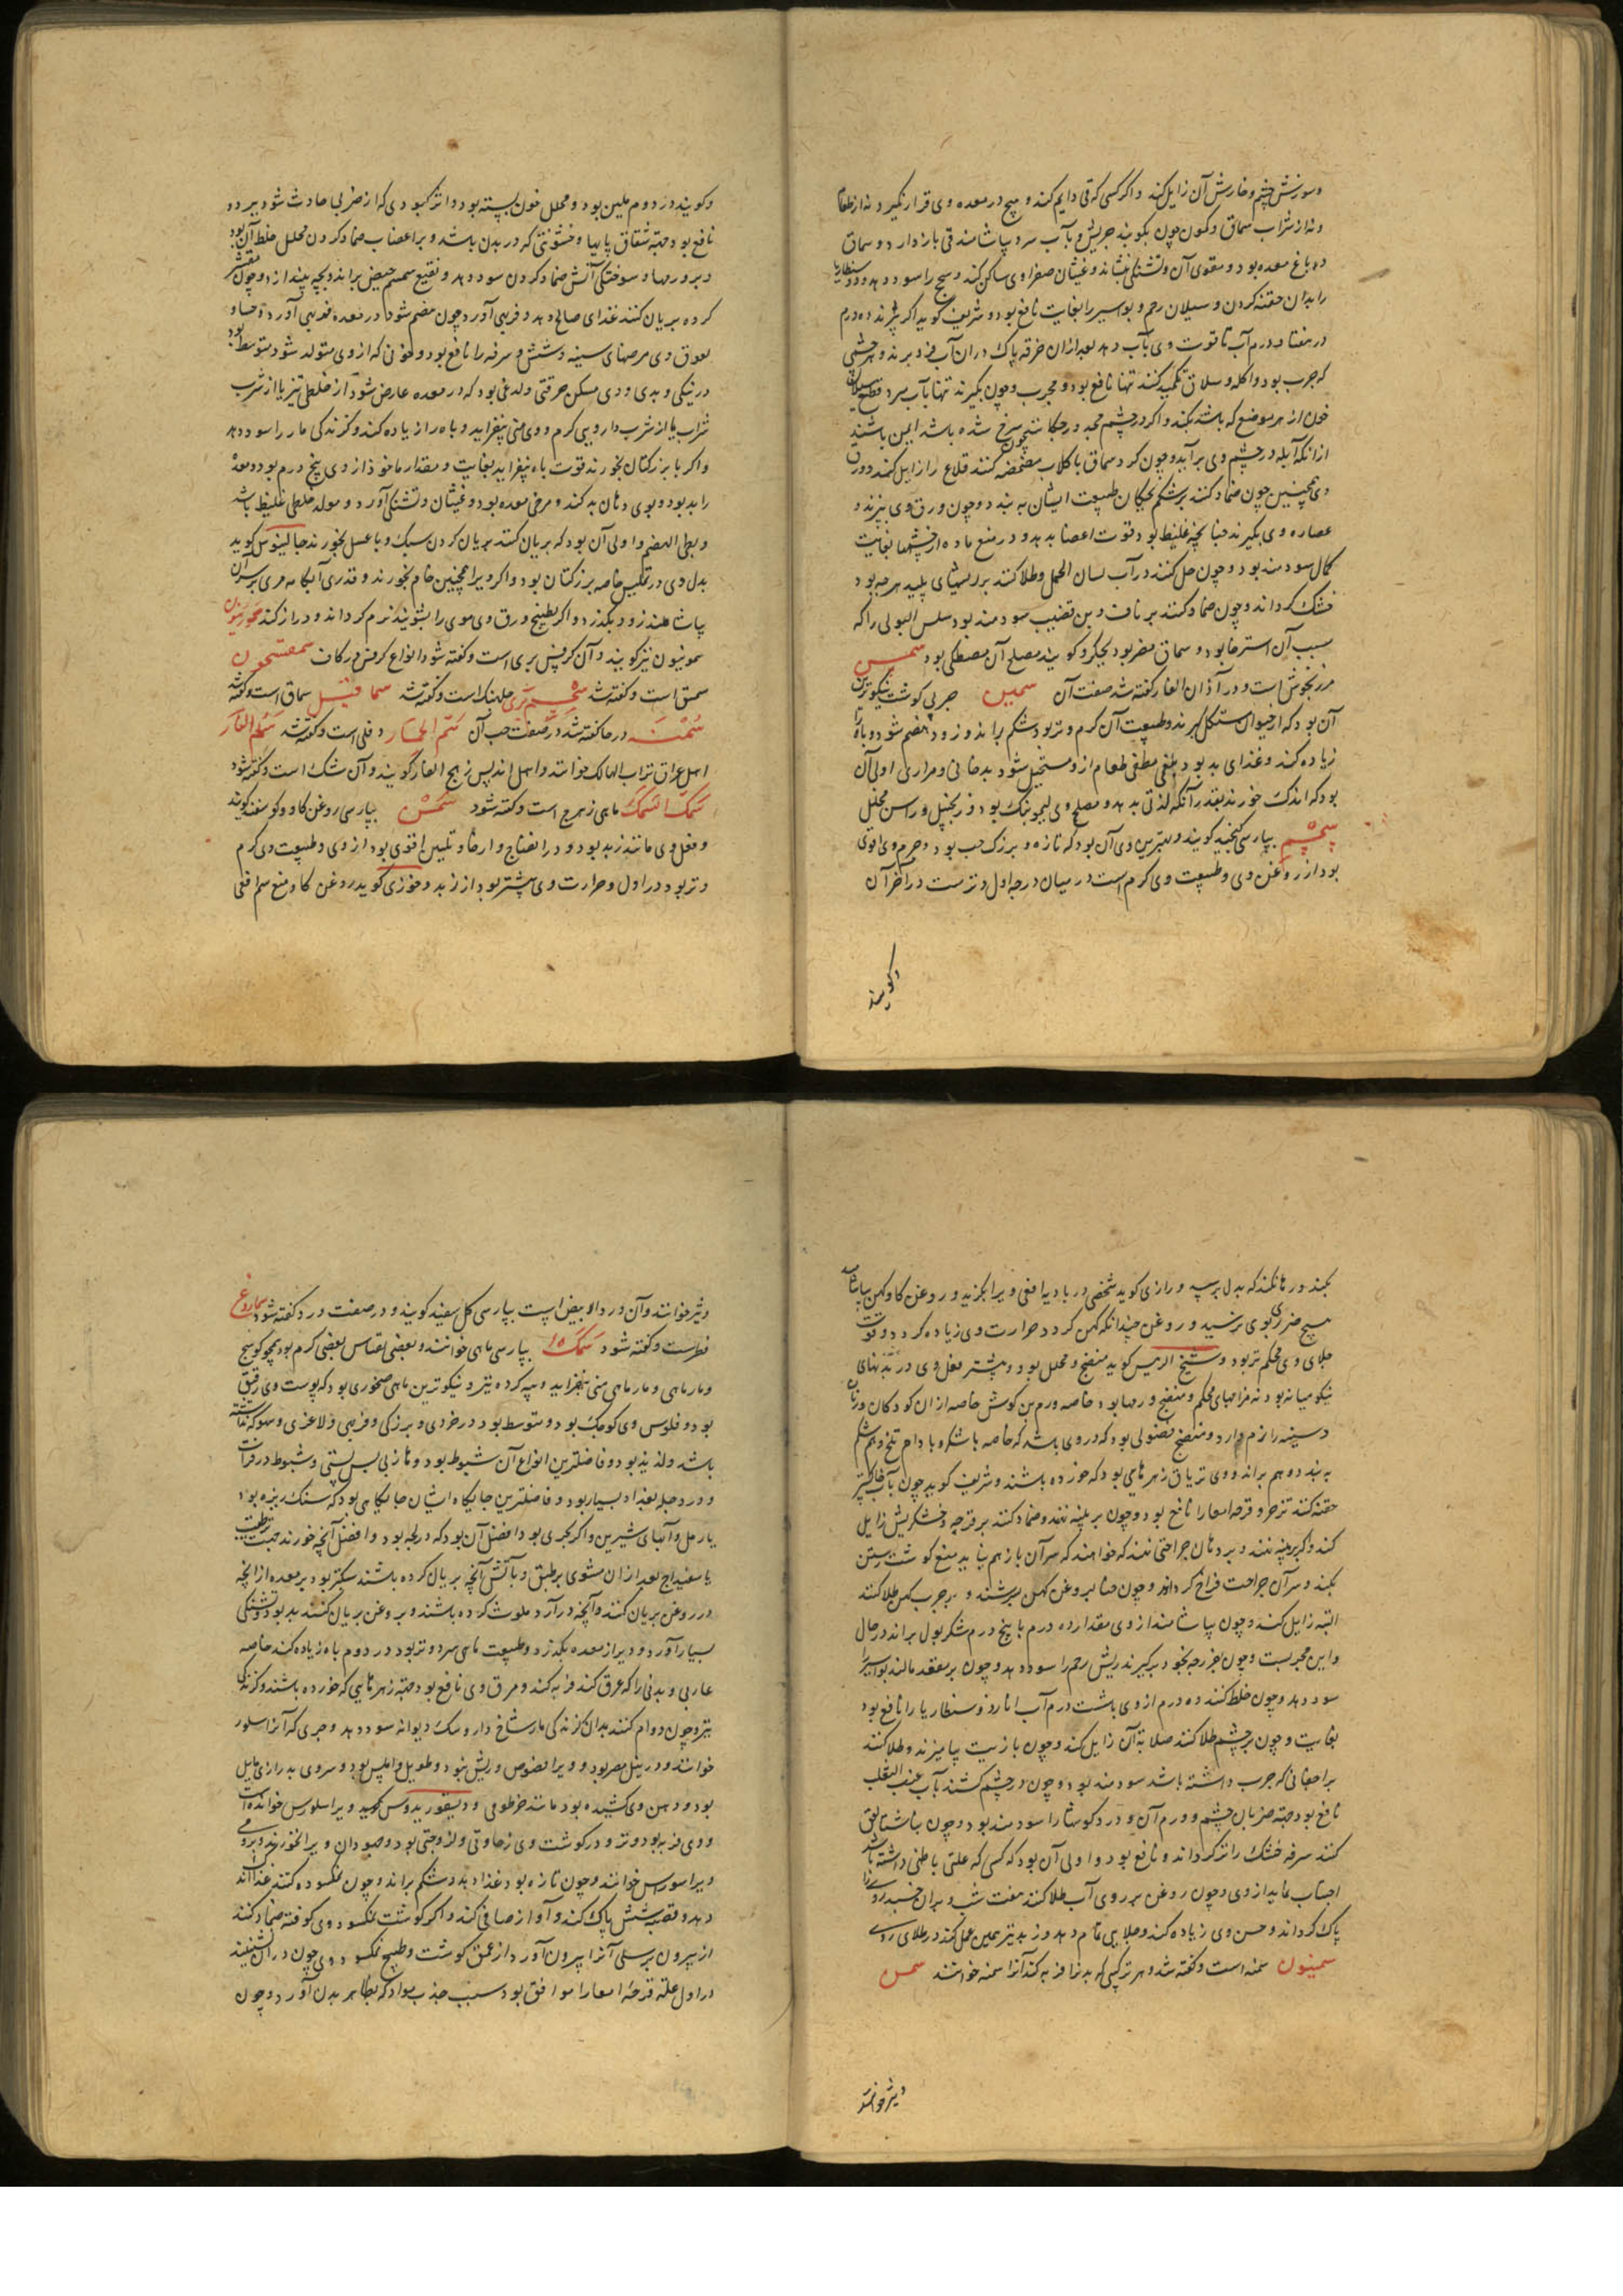 وسوزش چشم وخارش آن زایل کند واکر کسی که قی دایم کند و هیچ در معده وی قرار نکیرد نه از طعام
ونه از شراب سماق وکمون چون بکوبند جریش و با آب سرد بیاشامند قی باز دارد و سماق
دباغ معده بود و مقوی آن وتشنکی بنشاند وغثیان صفراوی ساکن کند وسحج را سود دهد
را بدان حقنه کردن وسیلان رحم وبواسیر را بغایت نافع بود وشریف کوید اکر ده درم
در هفتاد درم آب تا قوت وی بآب دهد بعد ازان خرقه پاک دران آب فرو برند و هر چشمی
که جرب بود واکله وسلاق تکمید کنند تنها نافع بود و مجرب وچون بکیرند تنها بآب سرد قطع سیلان
خون از هر موضع که باشد بکند واکر در چشم چون سرخ شده باشد ایمن باشند
ازانکه آبله در چشم وی برآید وچون کرد سماق با کلاب مضمضه کنند قلاع را زایل کند وورق
وی همچنین چون ضماد کنند بر شکم بچکان طبیعت ایشان به بندد وچون ورق وی بپزند و
عصاره وی بکیرند چنانچه غلیظ بود قوت اعضا بدهد ودر منع ماده از چشمها بغایت
کمال سودمند بود وچون حل کنند در آب لسان الحمل وطلا کنند بر ریشهای پلید هرچه بود
خشک کرداند وچون ضماد کنند بر ناف وبن قضیب سودمند بود سلس البولی را که
سبب آن استرخا بود و سماق مضر بود بجکر وکویند مصلح آن مصطکی بود سمسق
مرزنجوش است و در آذان الفار کفته شد صفت آن سمین چربی کوشت نیکوترین
آن بود که از حیوان مستکمل کیرند وطبیعت آن کرم وتر بود شکم براند وزود هضم شود وباه را
زیاده کند وغذای بد بود بلغمی مطفی طعام از و مستحیل شود بدخانی ومراری اولی آن
بود که اندک خورند بقدر آنکه لذتی بدهد و مصلح وی لیمو نمک بود وزنجبیل وراسن مخلل
سمسم بپارسی کنجید کویند وبهترین وی آن بود که تازه و بزرک حب بود و جرم وی اقوی
بود از روغن وی وطبیعت وی کرم است در میان درجه اول وتر است در آخر آن
وکویند
وکویند در دوم ملین بود و محلل خون بسته بود واثر کبودی که از ضربی حادث شود ببرد و
نافع بود جهة شقاق پایها وخشونتی که در بدن باشد وبر اعصاب ضماد کردن محلل غلظ آن بود
وبر ورمها وسوختکی آتش ضماد کردن سود دهد ونقیع سمسم حیض براند وبچه بیندازد وچون مقشر
کرده بریان کنند غذای صالح دهد وفربهی آورد چون هضم شود در معده فربهی آورد وحساء و
لعوق وی مرضهای سینه وشش وسرفه را نافع بود وخونی که از وی متولد شود متوسط بود
در نیکی وبدی و وی مسکن حرقتی ولذعی بود که در معده عارض شود از خلطی تیز یا از شرب
شراب یا از شرب دارویی کرم ووی منی بیفزاید وباه را زیاده کند وکزندکی مار را سود دهد
واکر با بزرکتان بخورند قوت باه بیفزاید بغایت ومقدار ماخوذ از وی پنج درم بود ومعده
را بد بود وبوی دهان بد کند ومرخی معده بود وغثیان وتشنکی آورد و مولد خلطی غلیظ باشد
وبطی الهضم واولی آن بود که بریان کنند بریان کردن سبک وبا عسل بخورند جالینوس کوید
بدل وی در تلیین خاصه بزرکتان بود واکر ویرا همچنین خام بخورند وقدری آبکامه مری بر سر آن
بیاشامند زود بکذرد واکر بطبیخ ورق وی موی را بشویند نرم کرداند ودراز کند سمرنیون
سمونیون نیز کویند وآن کرفس بری است وکفته شود انواع کرفس در کاف سمقسحون
سمسق است وکفته شد سمسم بری جلبنک است وکفته شد سماقیل سماق است وکفته شد
سمنه در حا کفته شد در صفت حب آن سم الحمار دفلی است وکفته شد سم الفار
اهل عراق تراب الهالک خوانند واهل اندلس رهج الفار کویند وآن شک است وکفته شود
سمک السمک ماهی زهرج است وکفته شود سمن بپارسی روغن کاو وکوسفند کویند
وفعل وی مانند زبد بود و در انضاج وارخا وتلیین اقوی بود از وی وطبیعت وی کرم
وتر بود در اول وحرارت وی بیشتر بود از زبد وخوزی کوید روغن کاو منع سم افعی
بکند ورها نکند که بدل برسد ورازی کوید شخصی در بادیه افعی ویرا بکزید وروغن کاو کهن بیاشامید
هیچ ضرری بوی نرسید وروغن چندانکه کهن کردد حرارت وی زیاده کردد وقوت
جلای وی محکم تر بود وشیخ الرییس کوید منضج ومحلل بود وبیشتر فعل وی در بدنهای
نیکو میانه بود نه مزاجهای محکم ومنضج ورمها بود خاصه ورم بن کوش خاصه ازان کودکان وزنان
وسینه را نرم دارد ومنضج فضولی بود که در وی باشد که خاصه با شکر وبادام تلخ وهم شکم
به بندد وهم براند ووی تریاق زهرهای بود که خورده باشند وشریف کوید چون بآب خاکستر
حقنه کنند زحیر وقرحه امعا را نافع بود وچون بر پنبه نهند وضماد کنند بر قرحه وخشکریش زایل
کند واکر بر پنبه نهند وبر دهان جراحتی نهند که خواهند که سر آن باز هم نیاید منع کوشت رستن
بکند وسر آن جراحت فراخ کرداند وچون حنا بروغن کهن بسرشند وبر جرب کهن طلا کنند
البته زایل کند وچون بیاشامند از وی مقدار ده درم با پنج درم شکر بول براند در حال
واین مجربست وچون فرزجه بخود برکیرند ریش رحم را سود دهد وچون بر مقعد مالند بواسیر را
سود دهد وچون خلط کنند ده درم از وی با شت درم آب انار وذوسنطاریا را نافع بود
بغایت وچون بر چشم طلا کنند صلابة آن زایل کند وچون با زیت بیامیزند وطلا کنند
بر اجفانی که جرب داشته باشد سودمند بود وچون در چشم کشند بآب عنب الثعلب
نافع بود جهة ضربان چشم وورم آن ودرد کوشها را سودمند بود وچون ناشتا لعق
کنند سرفه خشک را تر کرداند ونافع بود واولی آن بود که کسی که علتی باطنی داشته باشد
اجتناب نماید از وی وچون روغن بر روی آب طلا کنند هفت شب وبران خسبد روی را
پاک کرداند وحسن وی زیاده کند وجلایی تمام دهد وزبد نیز همین عمل کند در طلای روی
سمینون سمنه است وکفته شد وهر ترکیبی که بدن را فربه کند آنرا سمنه خوانند سمن
ونیز خوانند
ونیز خوانند وآن ورد ابیض است بپارسی کل سفید کویند ودر صفت ورد کفته شود سماروغ
فطرست وکفته شود سمک بپارسی ماهی خوانند وبعضی بقیاس بعضی کرم بود همچو کوسج
ومارماهی ومارماهی منی بیفزاید وپیه کرده نیز ونیکوترین ماهی صخوری بود که پوست وی رقیق
بود وفلوس وی کوچک بود ومتوسط بود در خردی وبزرکی وفربهی ولاغری وسهوکه نداشته
باشد ولذیذ بود وفاضلترین انواع آن شبوط بود ومازنی پس بنی وشبوط در فرات
ودر دجله بغداد بسیار بود وفاضلترین جایکاه ایشان جایکاهی بود که سنک ریزه بود
یا رمل وآبهای شیرین واکر بحری بود افضل آن بود که در لجه بود وافضل آنچه خورند
یا سفیداج بعد ازان مشوی بر طبق وبآتش آنچه بریان کرده باشند سبکتر بود بر معده از آنچه
در روغن بریان کنند وآنچه در آرد ملوث کرده باشند وبروغن بریان کنند بد بود وتشنکی
بسیار آورد ودیر از معده بکذرد وطبیعت ماهی سرد وتر بود در دوم باه زیاده کند خاصه
عاربی وبدنی را که عرق کند فربه کند ومرق وی نافع بود جهة زهرهایی که خورده باشند وکزندکی
نیز وچون دوام کنند بدان کزندکی مار شاخ دار وسک دیوانه سود دهد وجری که آنرا سلور
خوانند ودر نیل مصر بود وویرا فصوص وریش نبود وطویل واملس بود وسروی بدرازی مایل
بود ودهن وی کشیده بود مانند خرطومی ودیسقوریدوس کوید ویرا سلورس خوانند
ووی فربه بود وتر ودر کوشت وی رخاوتی ولزوجتی بود وجهودان ویرا نخورند ورومی
ویرا سورس خوانند وچون تازه بود غذا بدهد وشکم براند وچون نمکسوده کنند غذا اندک
دهد وقصبه شش پاک کند وآواز صافی کند واکر کوشت نمکسود وی کوفته ضماد کنند
از بیرون بر سلی آنرا بیرون آورد از عمق کوشت وطبیخ نمکسود وی چون دران نشینند
در اول علة قرحه امعا را موافق بود بسبب جذب مواد که بظاهر بدن آورد وچون